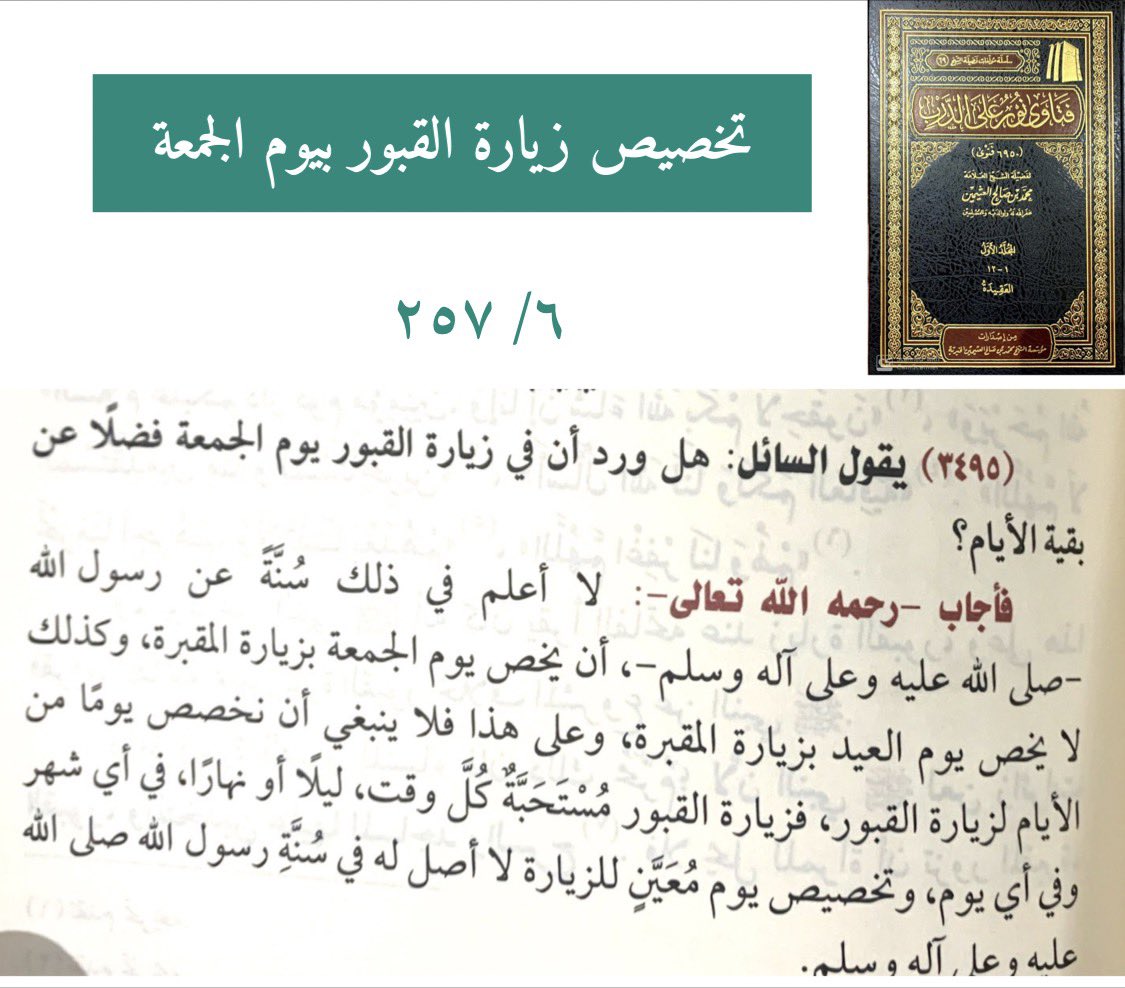 تخصيص زيارة القبور بيوم الجمعة
٦/ ٢٥٧
سلسلة مؤلفات فضيلة الشيخ (٦٩)
فتاوى نور على الدرب
(٦٩٥٠ فتوى)
لفضيلة الشيخ العلامة
محمد بن صالح العثيمين
غفر الله له ولوالديه وللمسلمين
المجلد الأول
١-١٢
العقيدة
من إصدارات
مؤسسة الشيخ محمد بن صالح العثيمين الخيرية
(٣٤٩٥) يقول السائل: هل ورد أن في زيارة القبور يوم الجمعة فضلًا عن
بقية الأيام؟
فأجاب -رحمه الله تعالى-: لا أعلم في ذلك سُنَّةً عن رسول الله
-صلى الله عليه وعلى آله وسلم-، أن يخص يوم الجمعة بزيارة المقبرة، وكذلك
لا يخص يوم العيد بزيارة المقبرة، وعلى هذا فلا ينبغي أن نخصص يومًا من
الأيام لزيارة القبور، فزيارة القبور مُسْتَحَبَّةٌ كُلَّ وقت، ليلًا أو نهارًا، في أي شهر
وفي أي يوم، وتخصيص يوم مُعَيَّنٍ للزيارة لا أصل له في سُنَّةِ رسول الله صلى الله
عليه وعلى آله وسلم.